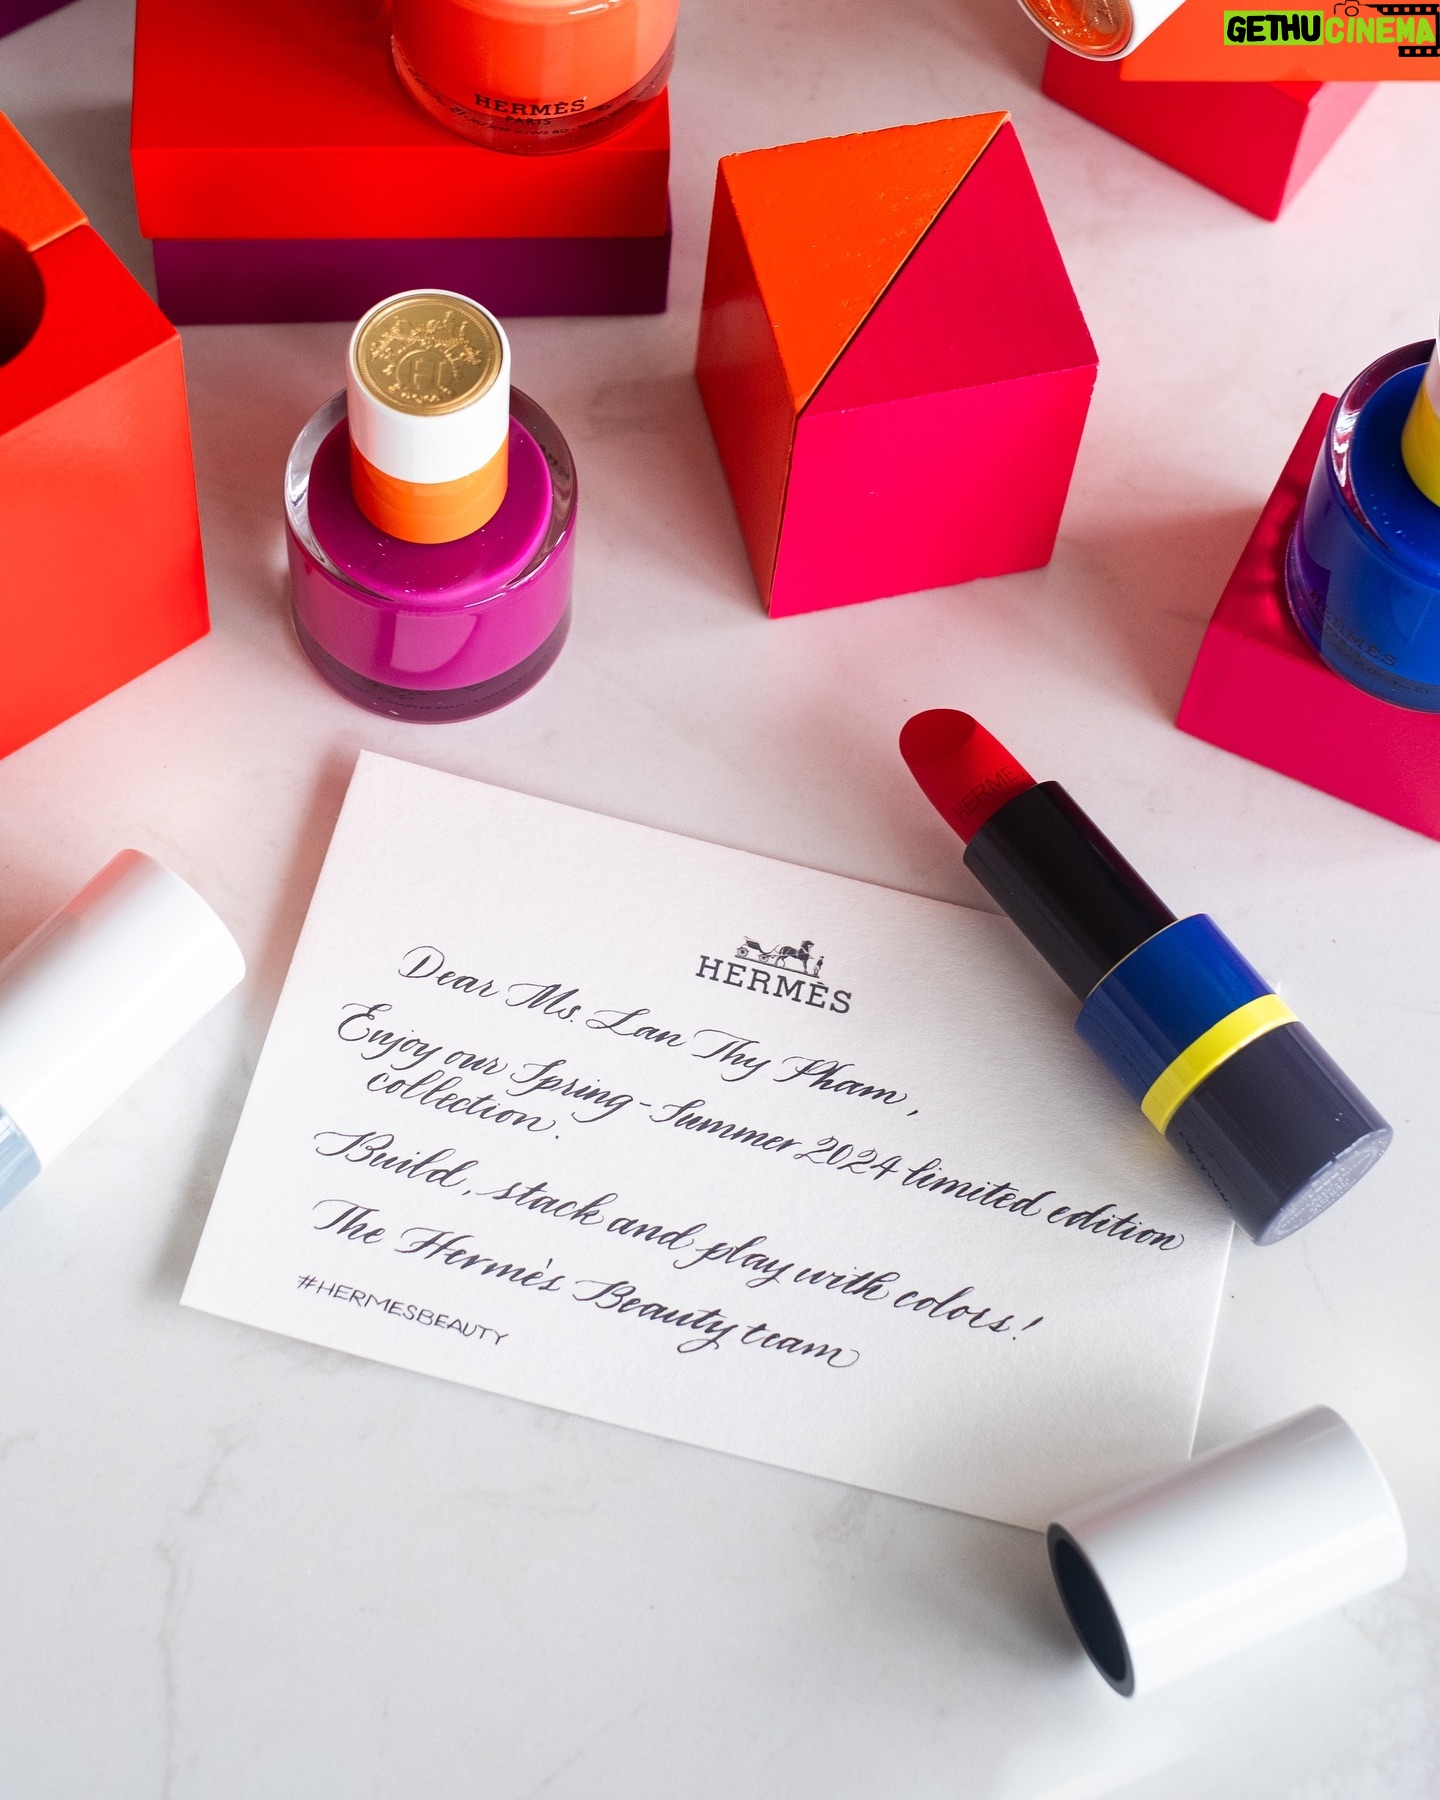 GETHUCINEMA
HERMÈS
PARIS
HERMÈS
HERMÈS
HERMÈS
Dear Ms. Lan Thy Pham,
Enjoy our Spring-Summer 2024 limited edition
collection.
Build, stack and play with colors!
The Hermès Beauty team
#HERMESBEAUTY